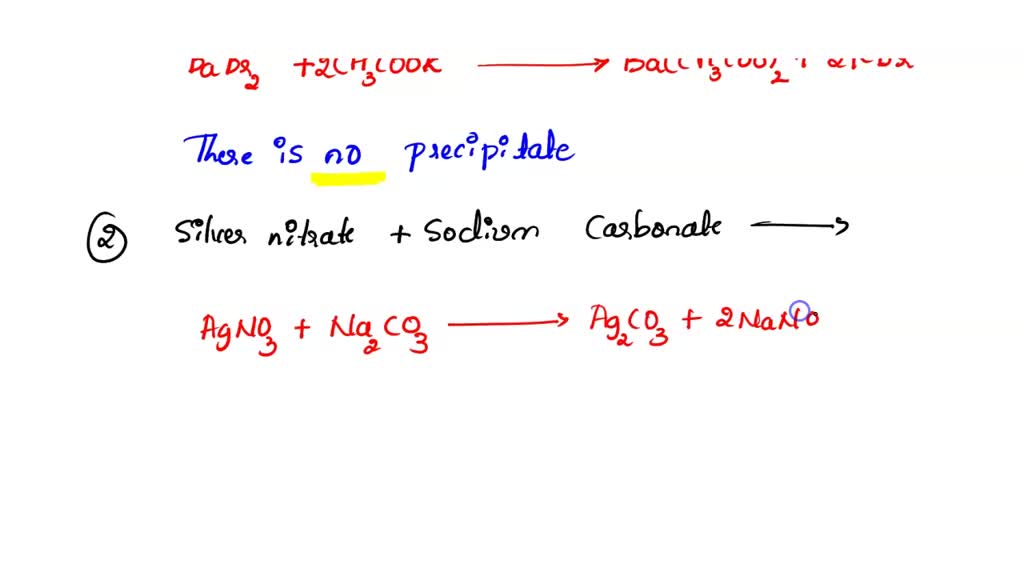 BaBr₂ + 2CH₃COOK ⟶ Ba(CH₃COO)₂ + 2KBr
There is no precipitate
② Silver nitrate + Sodium Carbonate ⟶
AgNO₃ + Na₂CO₃ ⟶ Ag₂CO₃ + 2NaNO